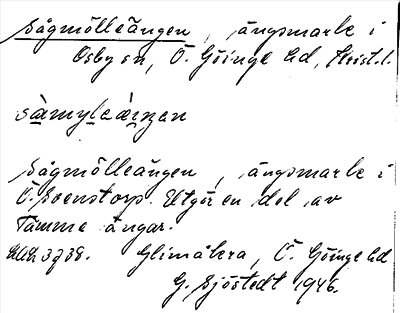 Sågmölleängen, ängsmark i
Osby sn, Ö. Göinge hd, Krist. l.
sàmyleæ̀ŋen
Sågmölleängen, ängsmark i
Ö. Svenstorp. Utgör en del av
Tamme ängar.
Glimåkra, Ö. Göinge hd
G. Sjöstedt 1946.